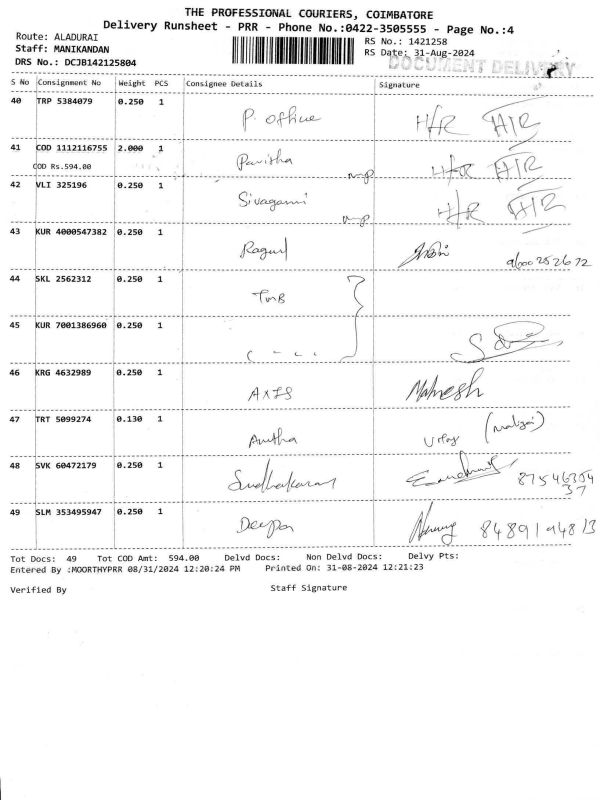 THE PROFESSIONAL COURIERS, COIMBATORE
Delivery Runsheet - PRR - Phone No.:0422-3505555 - Page No.:4
Route: ALADURAI
RS No.: 1421258
Staff: MANIKANDAN
RS Date: 31-Aug-2024
DOCUMENT DELIVERY
DRS No.: DCJB142125804
S No Consignment No Weight PCS Consignee Details Signature
40 TRP 5384079 0.250 1
P. office H/R H/R
41 COD 1112116755 2.000 1
COD Rs.594.00 Pavitha H/R H/R
42 VLI 325196 0.250 1
Sivagami H/R H/R
43 KUR 4000547382 0.250 1
Ragul 9600252672
44 SKL 2562312 0.250 1
TMB
45 KUR 7001386960 0.250 1
46 KRG 4632989 0.250 1
AXIS Mahesh
47 TRT 5099274 0.130 1
Anitha
48 SVK 60472179 0.250 1
Sudhakaran 87546354
37
49 SLM 353495947 0.250 1
Deepa 8489194813
Tot Docs: 49 Tot COD Amt: 594.00 Delvd Docs: Non Delvd Docs: Delvy Pts:
Entered By :MOORTHYPRR 08/31/2024 12:20:24 PM Printed On: 31-08-2024 12:21:23
Verified By Staff Signature